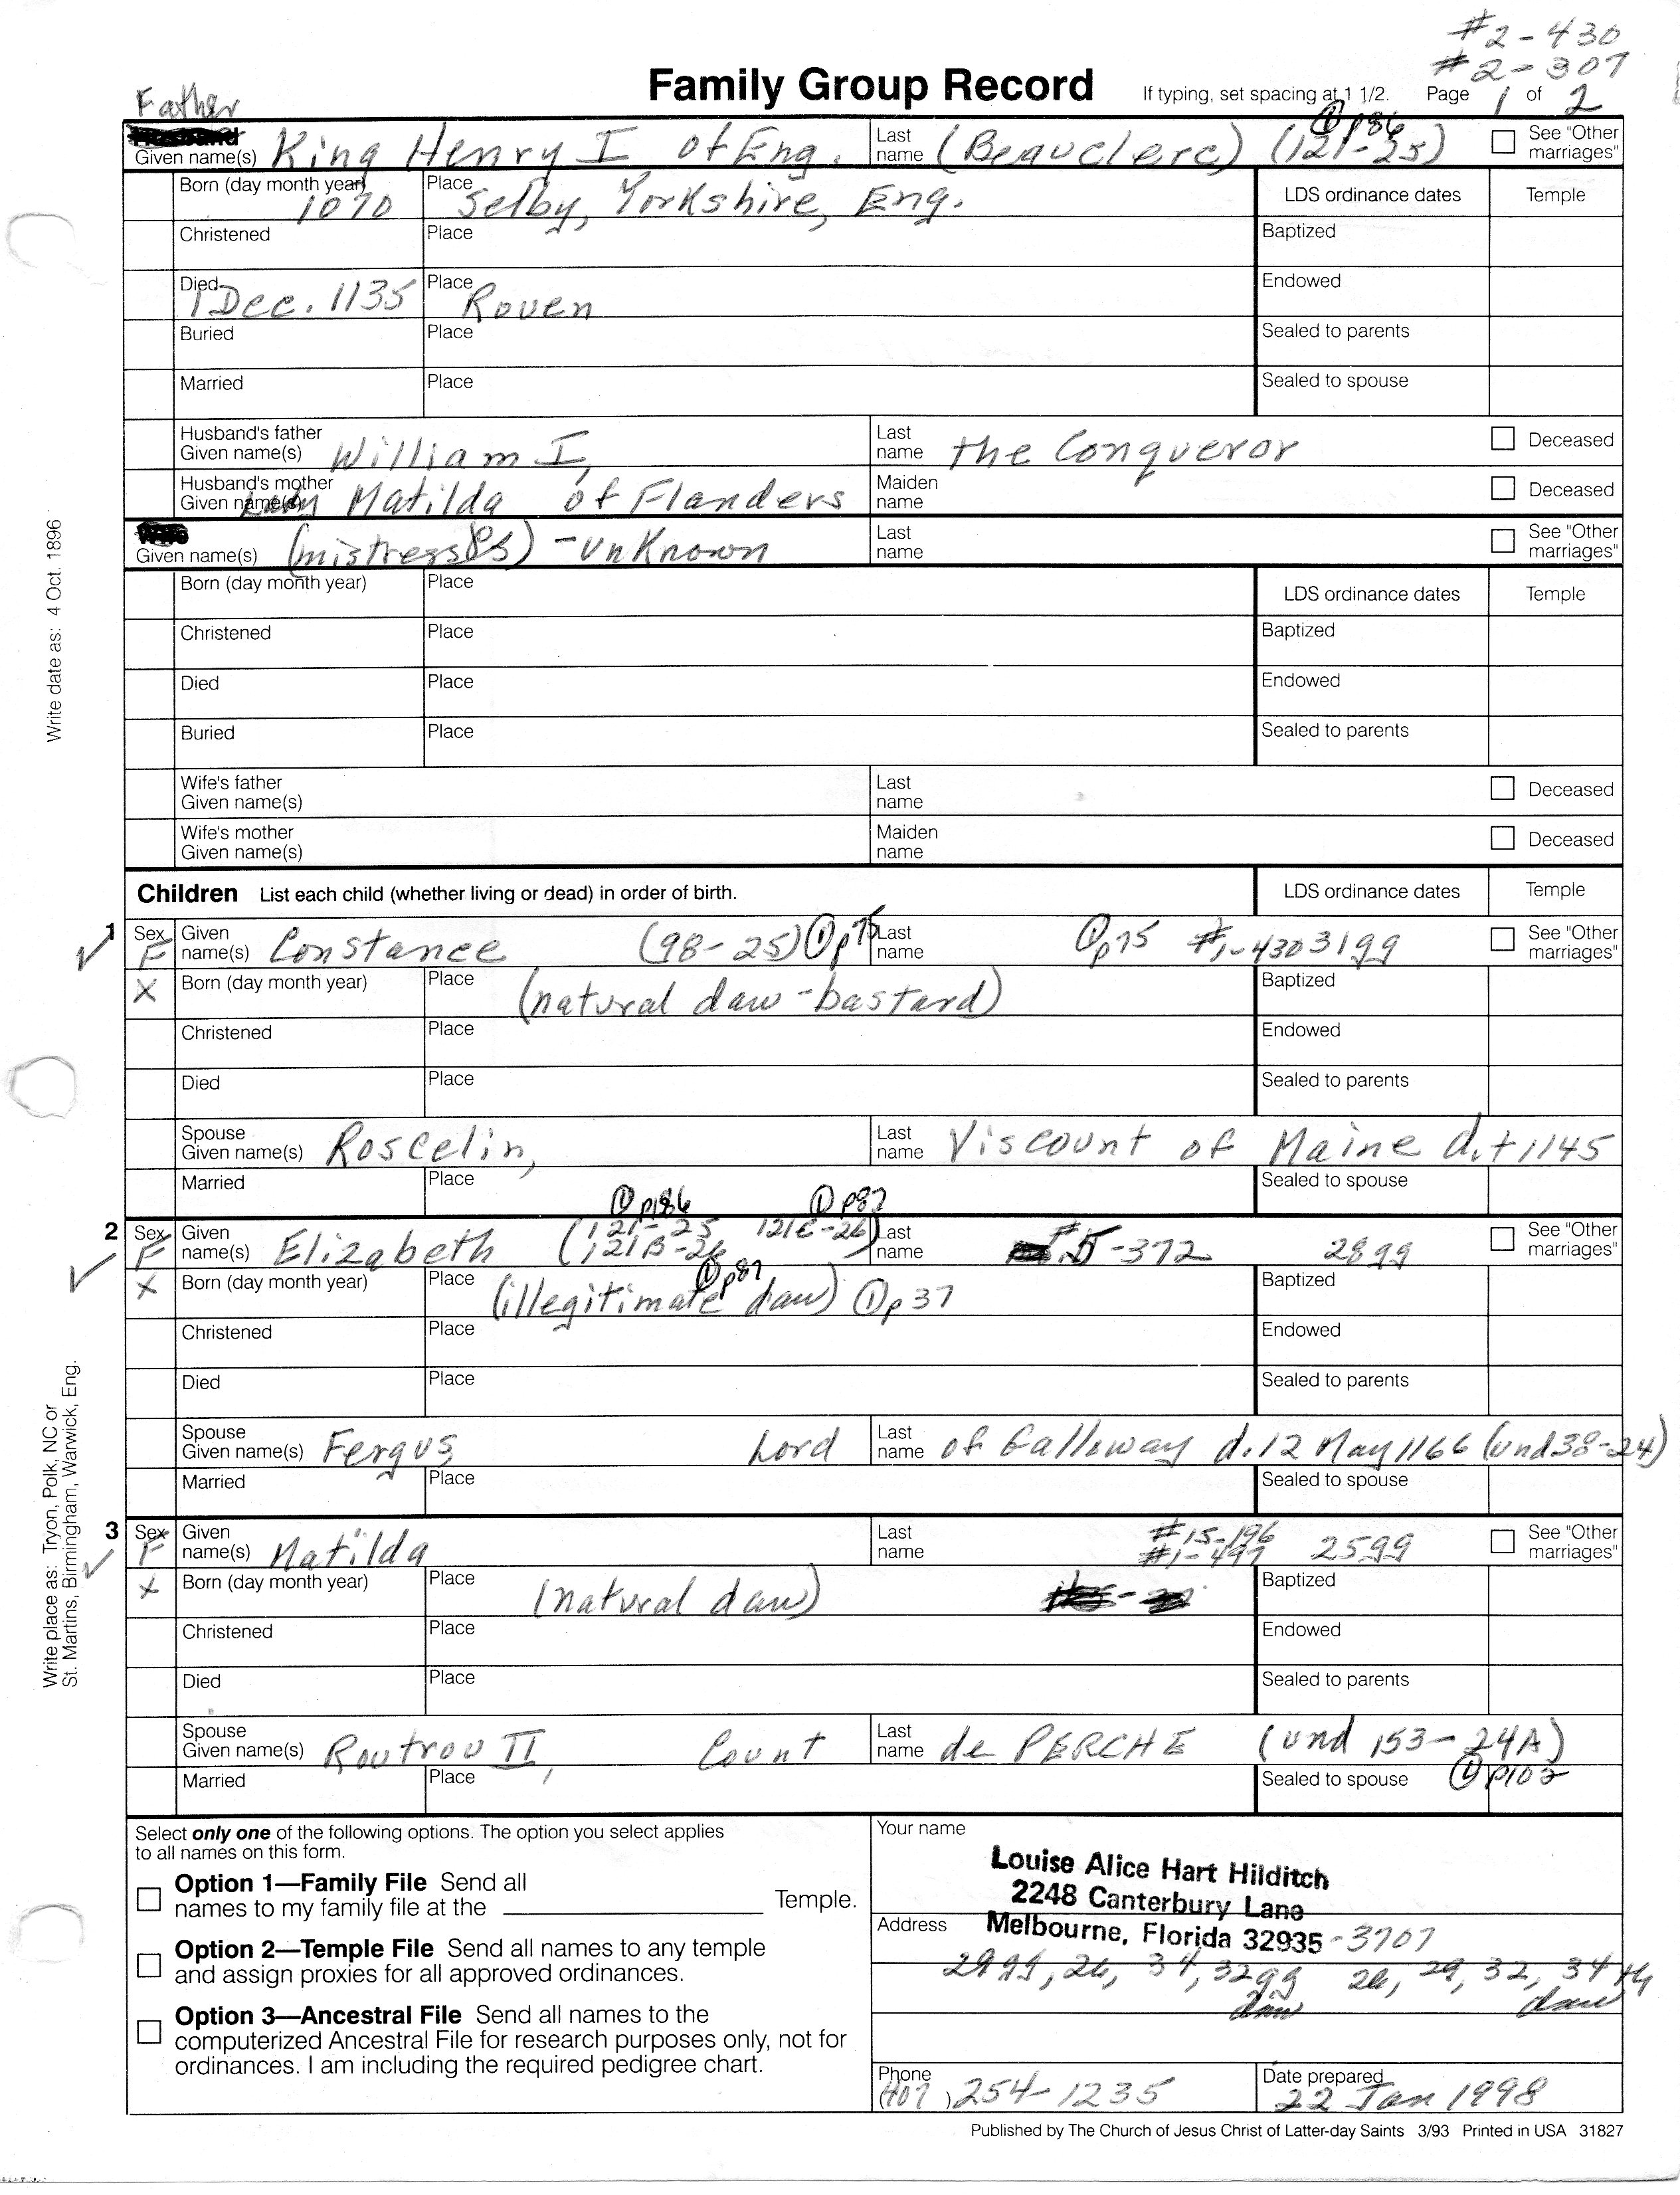 #2-430
#2-307
Family Group Record If typing, set spacing at 1 1/2. Page 1 of 2
Father
Given name(s) King Henry I of Eng. Last name (Beauclerc) (121-25) ① p86 See "Other marriages"
Born (day month year) 1070 Place Selby, Yorkshire, Eng. LDS ordinance dates Temple
Christened Place Baptized
Died 1 Dec. 1135 Place Rouen Endowed
Buried Place Sealed to parents
Married Place Sealed to spouse
Husband's father Given name(s) William I, Last name the Conqueror Deceased
Husband's mother Given name(s) Lady Matilda of Flanders Maiden name Deceased
Given name(s) (mistresses) - unKnown Last name See "Other marriages"
Born (day month year) Place LDS ordinance dates Temple
Christened Place Baptized
Died Place Endowed
Buried Place Sealed to parents
Wife's father Given name(s) Last name Deceased
Wife's mother Given name(s) Maiden name Deceased
Children List each child (whether living or dead) in order of birth. LDS ordinance dates Temple
1 Sex F Given name(s) Constance (98-25) ① p75 Last name ① p75 #1-430 3199 See "Other marriages"
X Born (day month year) Place (natural daw - bastard) Baptized
Christened Place Endowed
Died Place Sealed to parents
Spouse Given name(s) Roscelin, Last name Viscount of Maine d.+ 1145
Married Place Sealed to spouse
① p186 ① p87
2 Sex F Given name(s) Elizabeth (121-25 121B-26 121C-26) Last name #5-372 2899 See "Other marriages"
X Born (day month year) Place (illegitimate daw) ① p87 ① p37 Baptized
Christened Place Endowed
Died Place Sealed to parents
Spouse Given name(s) Fergus Lord Last name of Galloway d.12 May 1166 (und 38-24)
Married Place Sealed to spouse
3 Sex F Given name(s) Matilda Last name #15-196 #1-497 2599 See "Other marriages"
X Born (day month year) Place (natural daw) Baptized
Christened Place Endowed
Died Place Sealed to parents
Spouse Given name(s) Routrou II, Count Last name de PERCHE (und 153-24A)
Married Place Sealed to spouse ① p102
Select only one of the following options. The option you select applies
to all names on this form.
Option 1—Family File Send all
names to my family file at the Temple.
Option 2—Temple File Send all names to any temple
and assign proxies for all approved ordinances.
Option 3—Ancestral File Send all names to the
computerized Ancestral File for research purposes only, not for
ordinances. I am including the required pedigree chart.
Your name
Louise Alice Hart Hilditch
2248 Canterbury Lane
Address Melbourne, Florida 32935-3707
29gg, 26, 34, 32gg 26, 29, 32, 34 th
daw daw
Phone (407) 254-1235 Date prepared 22 Jan 1998
Published by The Church of Jesus Christ of Latter-day Saints 3/93 Printed in USA 31827
Write date as: 4 Oct. 1896
Write place as: Tryon, Polk, NC or
St. Martins, Birmingham, Warwick, Eng.